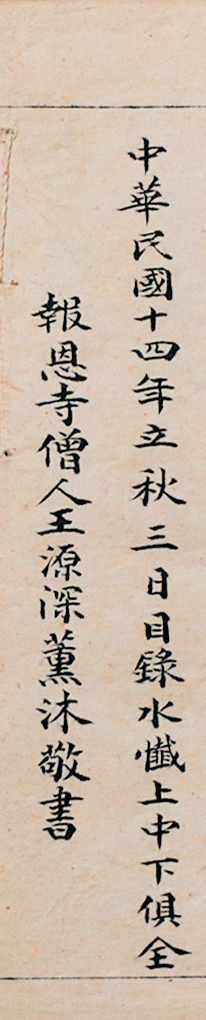 中華民國十四年立秋三日目錄水懺上中下俱全
報恩寺僧人王源深薰沐敬書